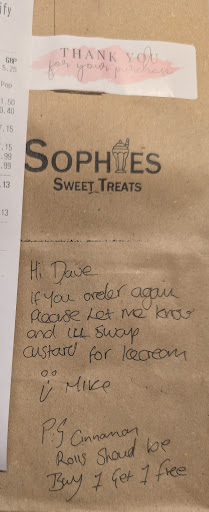 GBP
5.25
1.50
0.40
7.15
7.15
.99
.99
.13
13
THANK YOU
for your purchase
SOPHIES
SWEET TREATS
Hi Dave
if you order again
Please Let me know
and ill swap
custard for Icecream
Mike
P.S Cinnamon
Rolls Shoud be
Buy 1 Get 1 free